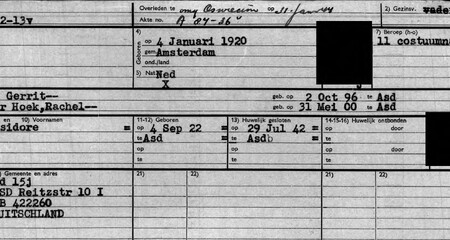 Overleden te omg Oswiecim op 21-Jan 44
2) Gezinsv. vade
Akte no. A 87-36
2-13v
4)
Geboren
op 4 Januari 1920
gem. Amsterdam
ond./land
5) Nat Ned
X
7) Beroep (h-o)
11 costuumn
Gerrit--
geb. op 2 Oct 96 te Asd
r Hoek,Rachel--
geb. op 31 Mei 00 te Asd
en 10) Voornamen
11-12) Geboren
13) Huwelijk gesloten
14-15-16) Huwelijk ontbonden
sidore = op 4 Sep 22 = op 29 Jul 42 = op door
te Asd te Asdb te
op op op door
te te te
) Gemeente en adres
21)
22)
21)
22)
d 15j
SD Reitzstr 10 I
B 422260
UITSCHLAND